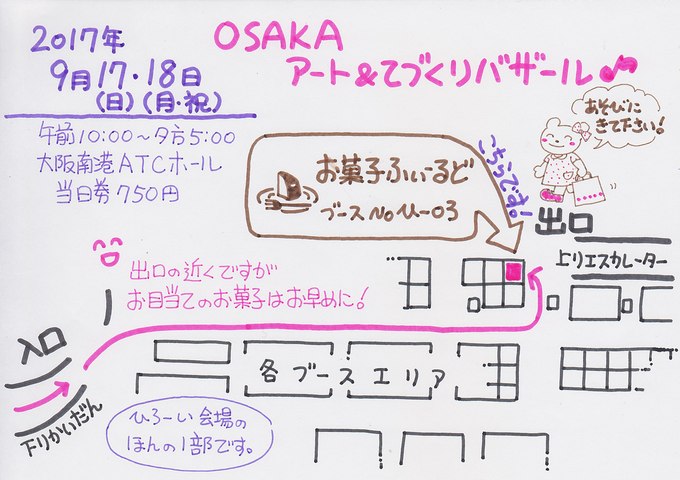 2017年
9月17・18日
(日)(月・祝)
OSAKA
アート&てづくりバザール
午前10:00〜夕方5:00
大阪南港ATCホール
当日券750円
お菓子ふぃーるど
ブースNoひ-03
こちらです!
あそびに
きて下さい!
出口
上りエスカレーター
出口の近くですが
お目当てのお菓子はお早めに!
入口
下りかいだん
各ブースエリア
ひろーい会場の
ほんの1部です。